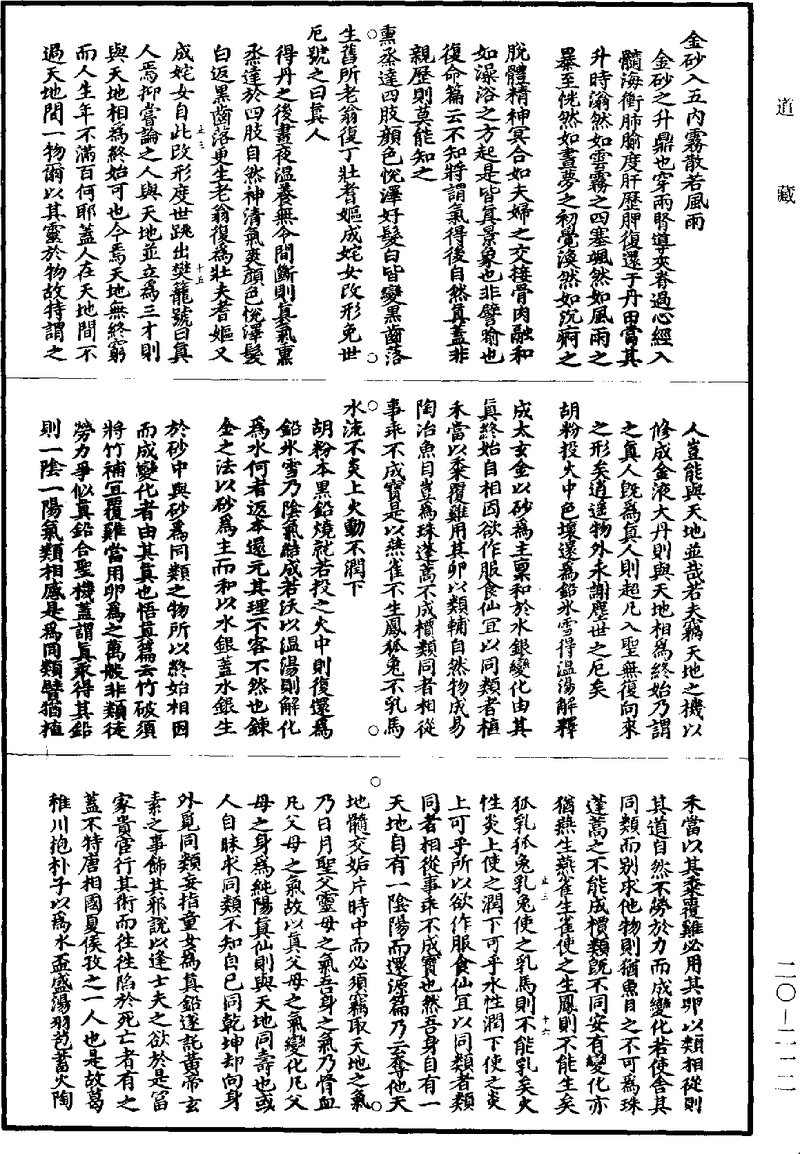 道藏
金砂入五內霧散若風雨
金砂之升鼎也穿兩腎導夾脊過心經入
髓海衝肺腧度肝歷脾復還于丹田當其
升時滃然如雲霧之四塞颯然如風雨之
暴至恍然如晝夢之初覺渙然如沉痾之
脫體精神冥合如夫婦之交接骨肉融和
如澡浴之方起是皆真景象也非譬喻也
復命篇云不知將謂氣得後自然真蓋非
親歷則莫能知之
熏烝達四肢顏色悅澤好髮白皆變黑齒落
生舊所老翁復丁壯耆嫗成姹女改形免世
厄號之曰真人
得丹之後晝夜溫養無令間斷則真氣熏
烝達於四肢自然神清氣爽顏色悅澤髮
白返黑齒落更生老翁復為壯夫耆嫗又
成姹女自此改形度世跳出樊籠號曰真
人焉抑嘗論之人與天地並立為三才則
與天地相為終始可也今焉天地無終窮
而人生年不滿百何耶蓋人在天地間不
過天地間一物爾以其靈於物故特謂之
人豈能與天地並哉若夫竊天地之機以
修成金液大丹則與天地相為終始乃謂
之真人既為真人則超凡入聖無復向來
之形矣逍遙物外永謝塵世之厄矣
胡粉投火中色壞還為鉛冰雪得溫湯解釋
成太玄金以砂為主稟和於水銀變化由其
真終始自相因欲作服食仙宜以同類者植
禾當以黍覆雞用其卵以類輔自然物成易
陶冶魚目豈為珠蓬蒿不成檟類同者相從
事乖不成寶是以燕雀不生鳳狐兔不乳馬
水流不炎上火動不潤下
胡粉本黑鉛燒就若投之火中則復還為
鉛冰雪乃陰氣結成若沃以溫湯則解化
為水何者返本還元其理不容不然也鍊
金之法以砂為主而和以水銀蓋水銀生
於砂中與砂為同類之物所以終始相因
而成變化者由其真也悟真篇云竹破須
將竹補宜覆雞當用卵為之萬般非類徒
勞力爭似真鉛合聖機蓋謂真汞得其鉛
則一陰一陽氣類相感是為同類譬猶植
禾當以其黍覆雞必用其卵以類相從則
其道自然不勞於力而成變化若使舍其
同類而別求他物則猶魚目之不可為珠
蓬蒿之不能成檟類既不同安有變化亦
猶燕生燕雀生雀使之生鳳則不能生矣
狐乳狐兔乳兔使之乳馬則不能乳矣火
性炎上使之潤下可乎水性潤下使之炎
上可乎所以欲作服食仙宜以同類者類
同者相從事乖不成寶也然吾身自有一
天地自有一陰陽而還源篇乃云奪他天
地髓交姤片時中而必須竊取天地之氣
乃日月聖父靈母之氣吾身之氣乃骨血
凡父母之氣故以真父母之氣變化凡父
母之身為純陽真仙則與天地同壽也或
人自昧求同類不知自己同乾坤却向身
外覓同類妄指童女為真鉛遂託黃帝玄
素之事飾其邪說以逢士夫之欲於是富
家貴宦行其術而往往陷於死亡者有之
蓋不特唐相國夏侯孜之一人也是故葛
稚川抱朴子以為冰盃盛湯羽苞蓄火陶
止三
十五
止三
十六
二〇—一一二